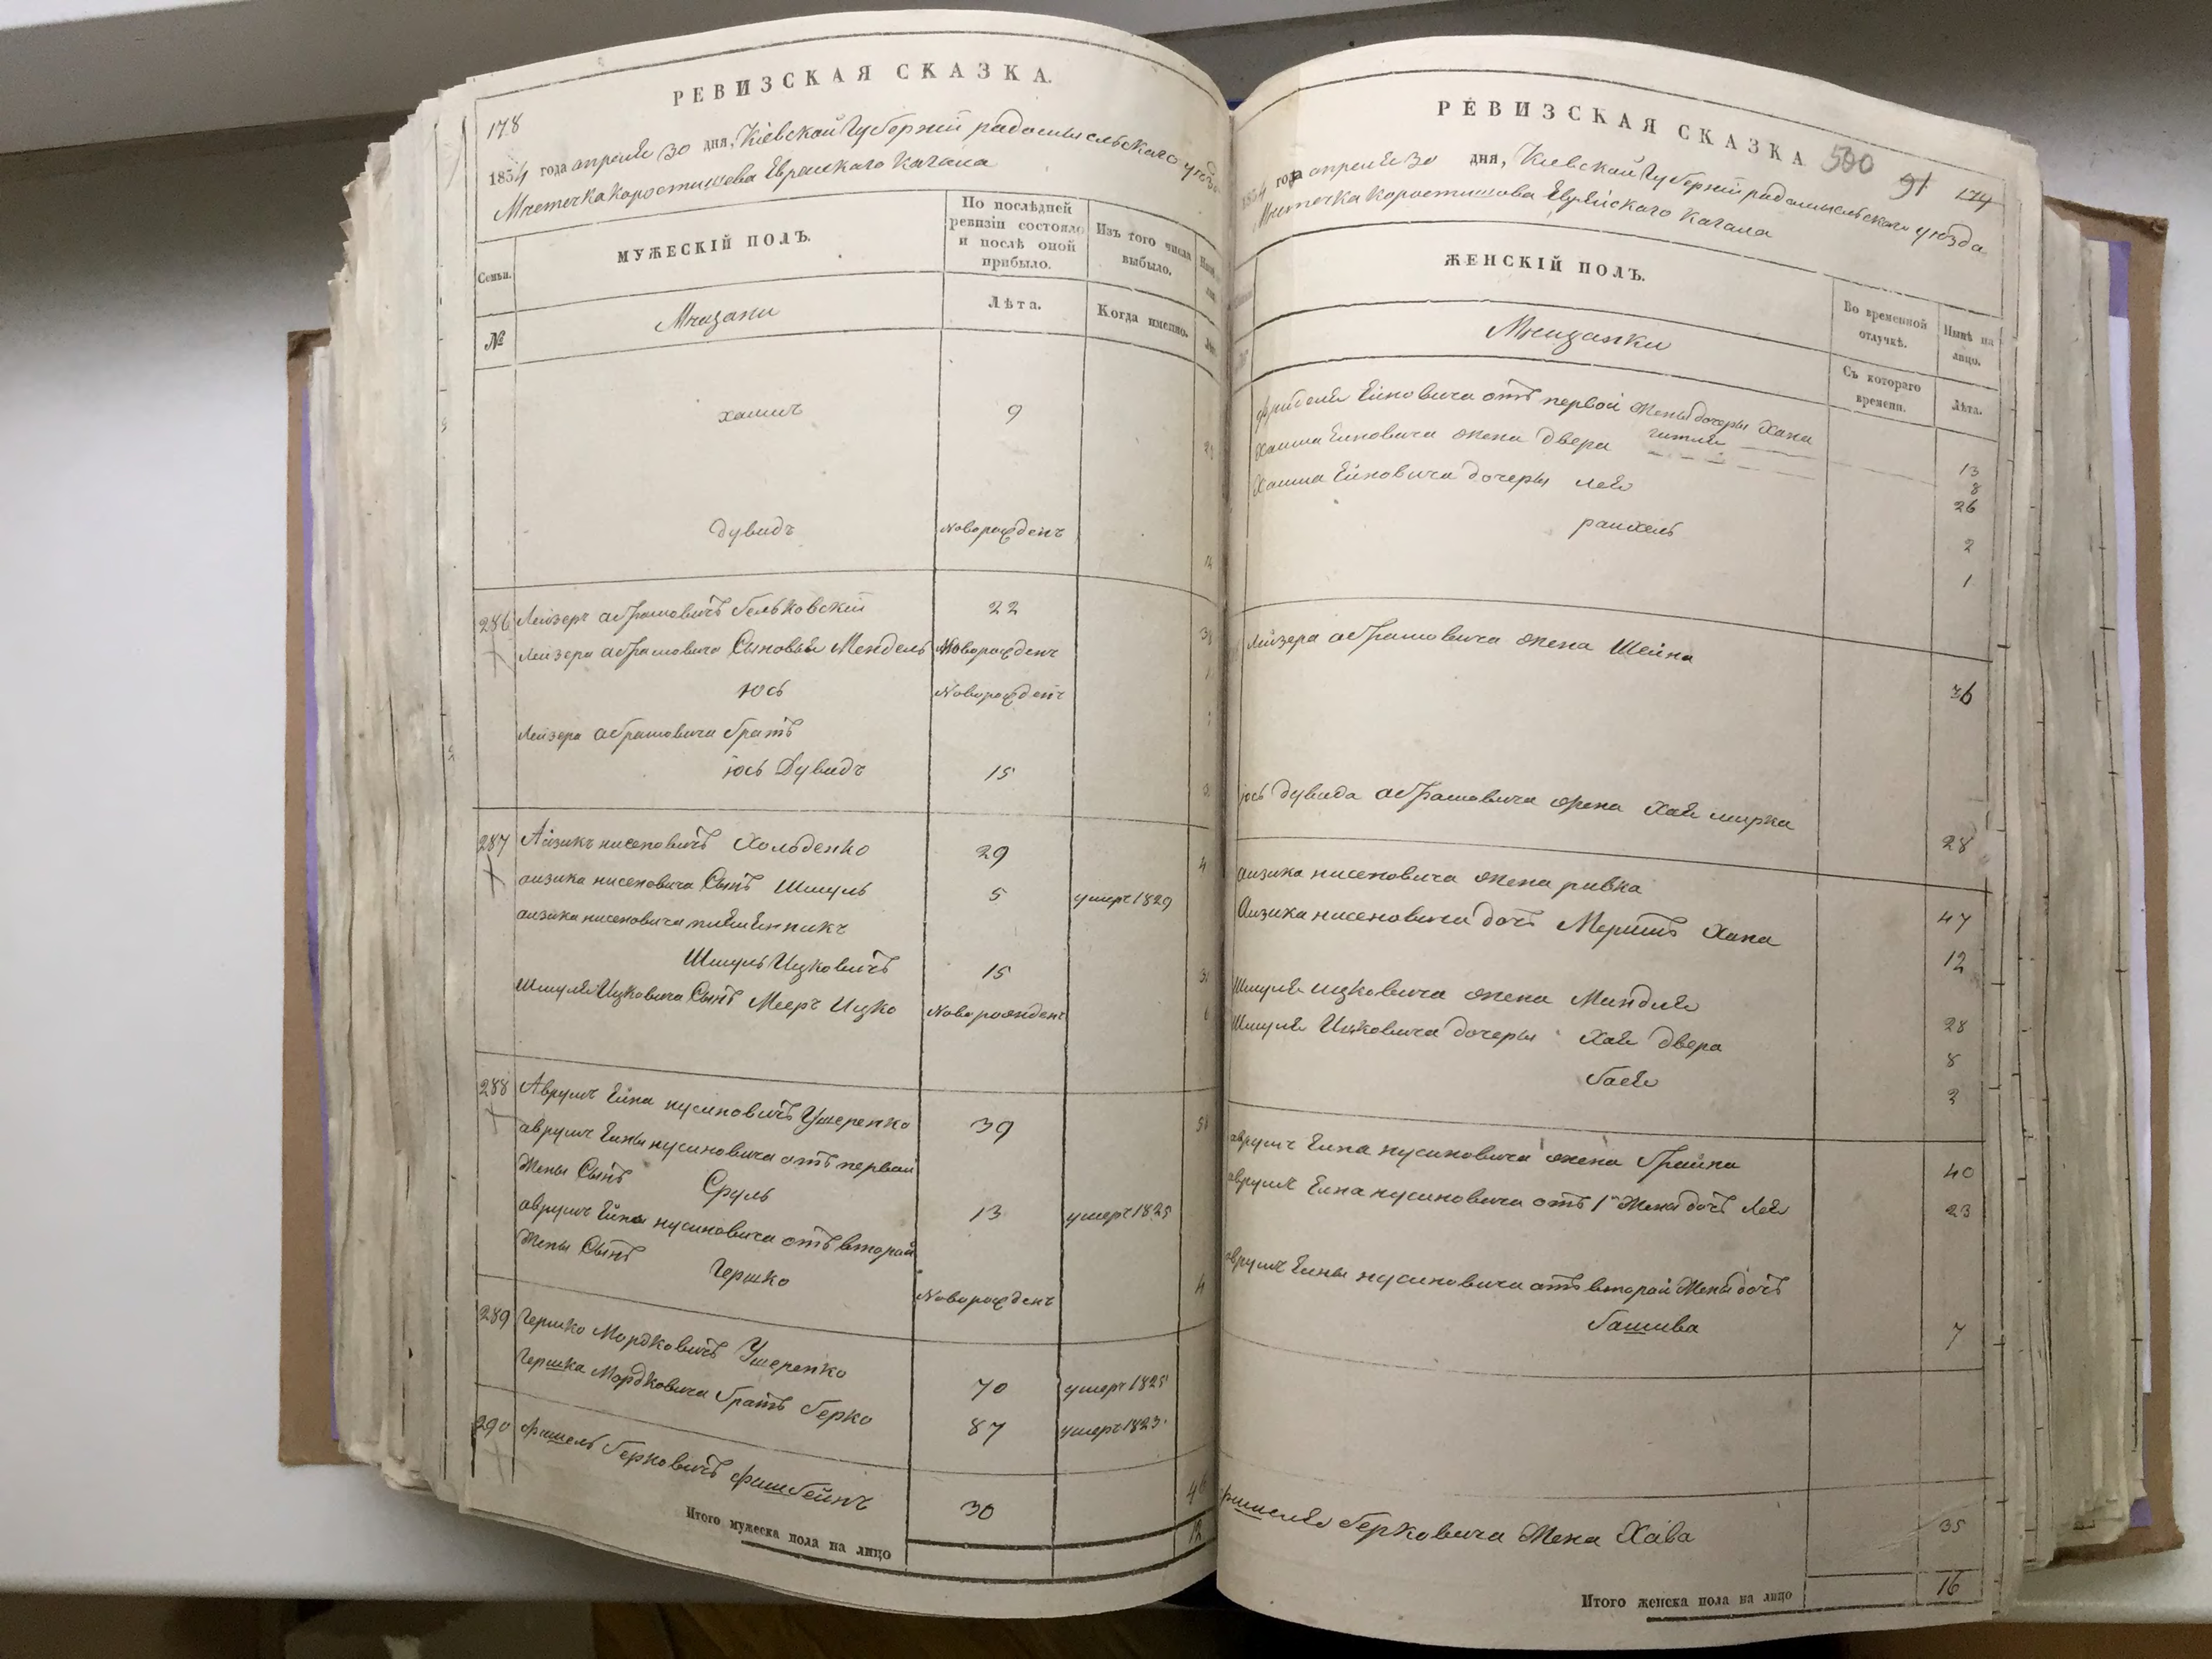 РЕВИЗСКАЯ СКАЗКА.
178
1834 года апреля 30 дня, Кіевской Губерніи радомысльскаго уезда
Местечка Коростишева Еврейскаго Кагала
Семьи.
МУЖЕСКІЙ ПОЛЪ.
По послѣдней ревизіи состояло и послѣ оной прибыло.
Изъ того числа выбыло.
№
Мещане
Лѣта.
Когда именно.
хаимъ 9
дувидъ Новорожденъ
286 Лейзеръ абрамовичъ бельковскій 22
Лейзера абрамовича Сыновья Мендель Новорожденъ
Юсь Новорожденъ
Лейзера абрамовича братъ
Юсь Дувидъ 15
287 Айзикъ нисеновичъ Холоденко 29
айзика нисеновича Сынъ Шмуль 5 умеръ 1829
айзика нисеновича племенникъ
Шмуль Ицковичъ 15
Шмуля Ицковича Сынъ Мееръ Ицко Новорожденъ
288 Аврумъ Ейна нусиновичъ Умеренко 39
аврумъ Ейны нусиновича отъ первой
Жены Сынъ Сруль 13 умеръ 1825
аврумъ Ейна нусиновича отъ второй
Жены Сынъ Гершко Новорожденъ
289 Гершко Мордковичъ Умеренко 70 умеръ 1825
Гершка Мордковича братъ берко 87 умеръ 1823
290 фишель берковичъ фишбейнъ 30
Итого мужеска пола на лицо 12
РЕВИЗСКАЯ СКАЗКА
500 91 174
1834 года апреля 30 дня, Кіевской Губерніи радомысльскаго уезда
Местечка Коростишова Еврейскаго Кагала
ЖЕНСКІЙ ПОЛЪ.
Во временной отлучкѣ.
Нынѣ на лицо.
Мещанки
Съ котораго времени.
Лѣта.
фриделя Ейновича отъ первой Жены дочеры Хана 13
гитля 8
Хаима Ейновича жена двера 26
Хаима Ейновича дочеры лея 2
раихель 1
Лейзера абрамовича жена Шейна 36
юсь дувида абрамовича жена Хая мирка 28
айзика нисеновича жена ривка 47
Айзика нисеновича дочь Хана 12
Шмуля ицковича жена Миндля 28
Шмуля Ицковича дочеры Хая двера 8
бася 2
аврумъ Ейна нусиновича жена брайна 40
аврумъ Ейна нусиновича отъ 1й Жены дочь Лея 23
аврумъ Ейны нусиновича отъ второй Жены дочь
башива 7
фишеля берковича Жена Хава 35
Итого женска пола на лицо 16